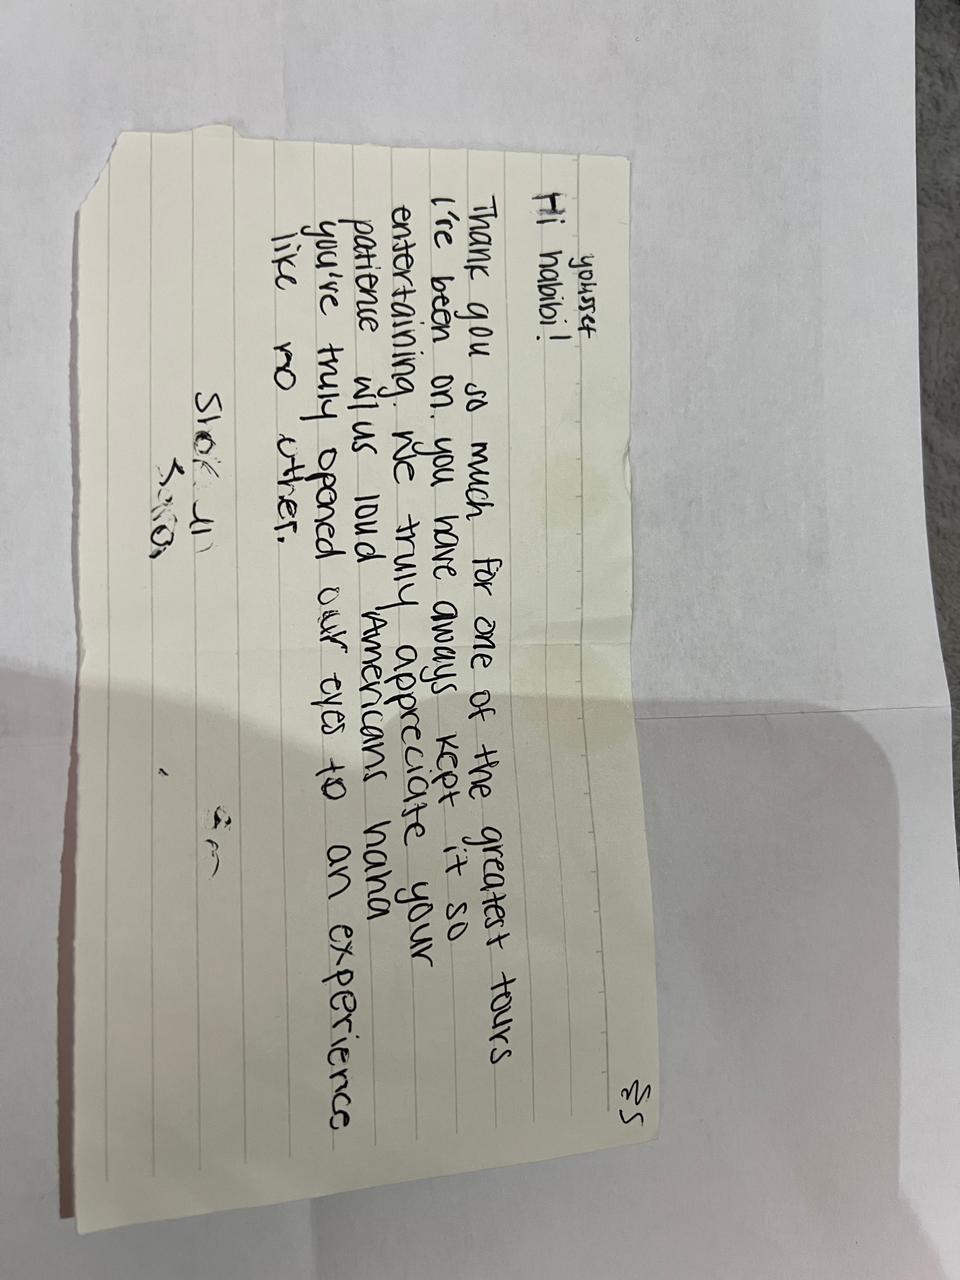 yousset
Hi habibi!
Thank you so much for one of the greatest tours
I're been on. you have aways kept it so
entertaining. We truly appreciate your
patience w/us loud Americans haha
you're truly opened our eyes to an experience
like no other.